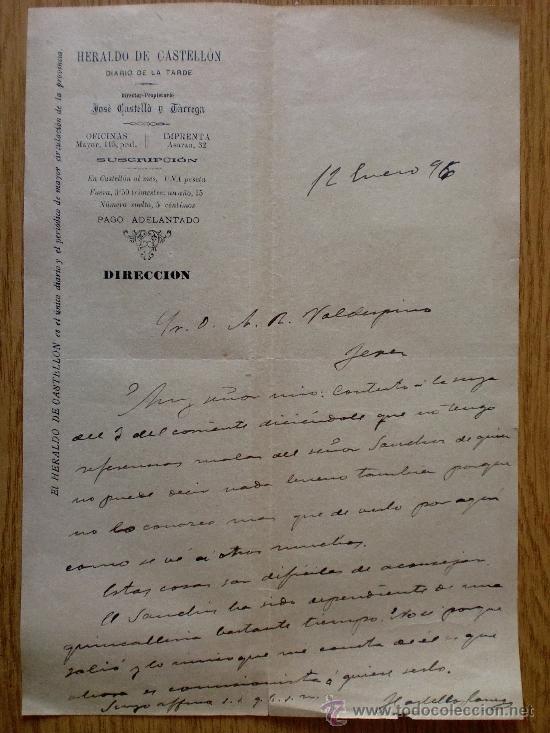 El HERALDO DE CASTELLÓN es el único diario y el periódico de mayor circulación de la provincia.
HERALDO DE CASTELLÓN
DIARIO DE LA TARDE
Director-Propietario
José Castelló y Tárrega
OFICINAS
Mayor, 115, pral.
IMPRENTA
Asarau, 32
SUSCRIPCIÓN
En Castellón al mes, UNA peseta
Fuera, 3'50 trimestre: un año, 15
Número suelto, 5 céntimos
PAGO ADELANTADO
DIRECCION
12 Enero 96
Sr. D. A. R. Valdespino
Jerez
Muy señor mio: Contesto á la suya
del 9 del corriente diciéndole que no tengo
referencias malas del señor Sanchis de quien
no puedo decir nada bueno tambien porque
no lo conozco mas que de verlo por aqui
como se vé á otros muchos.
Estas cosas son dificiles de aconsejar.
El Sanchis ha sido dependiente de una
quincalleria bastante tiempo. No sé porque
salió y lo único que me consta de él es que
ahora es comisionista ó quiere serlo.
Suyo affmo s. s. q. b. s. m.
todocoleccion